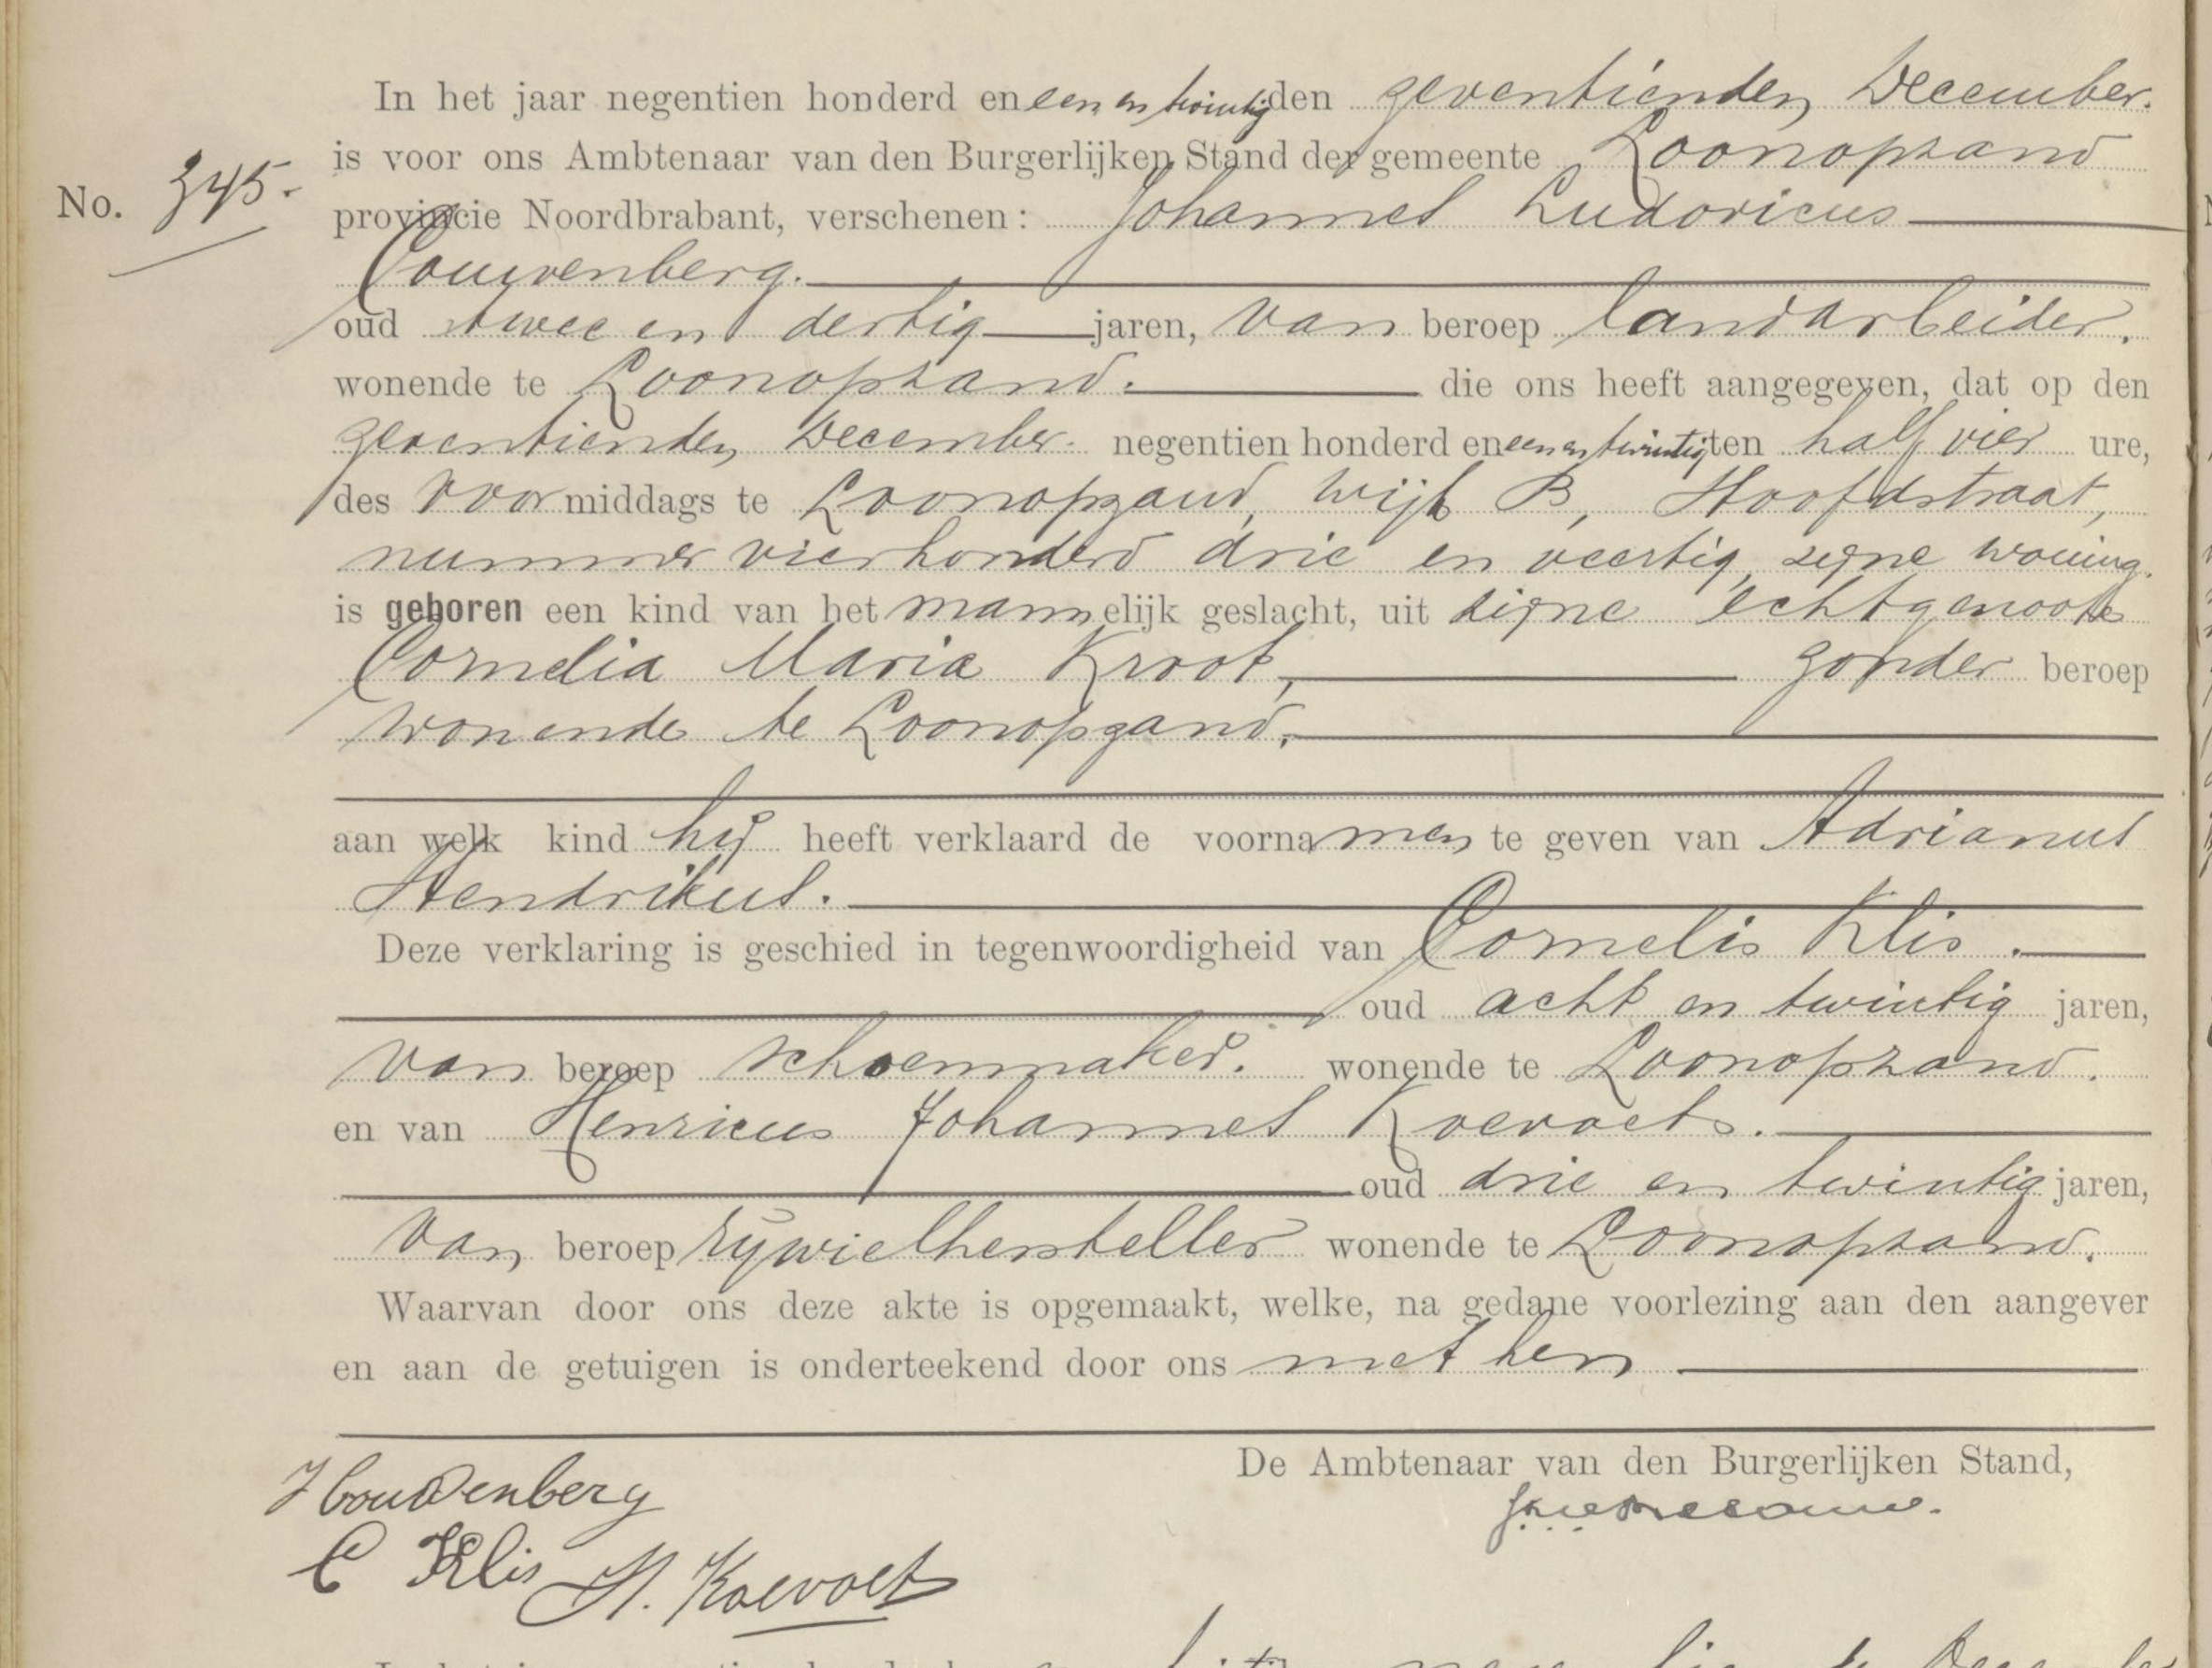 In het jaar negentien honderd en een en twintig den zeventienden December.
is voor ons Ambtenaar van den Burgerlijken Stand der gemeente Loonopzand
No. 345.
provincie Noordbrabant, verschenen: Johannes Ludovicus
Couwenberg.
oud twee en dertig jaren, van beroep landarbeider,
wonende te Loonopzand. die ons heeft aangegeven, dat op den
zeventienden December negentien honderd en een en twintig ten half vier ure,
des voormiddags te Loonopzand, wijk B, Hoofdstraat,
nummer vierhonderd drie en veertig, zijne woning.
is geboren een kind van het mannelijk geslacht, uit zijne echtgenoote
Cornelia Maria Kroot, zonder beroep
wonende te Loonopzand.
aan welk kind hij heeft verklaard de voornamen te geven van Adrianus
Hendrikus.
Deze verklaring is geschied in tegenwoordigheid van Cornelis Klis.
oud acht en twintig jaren,
van beroep schoenmaker. wonende te Loonopzand.
en van Henricus Johannes Koevoets.
oud drie en twintig jaren,
van beroep rijwielhersteller wonende te Loonopzand.
Waarvan door ons deze akte is opgemaakt, welke, na gedane voorlezing aan den aangever
en aan de getuigen is onderteekend door ons met hen
De Ambtenaar van den Burgerlijken Stand,
J Couwenberg
C Klis H. Koevoets